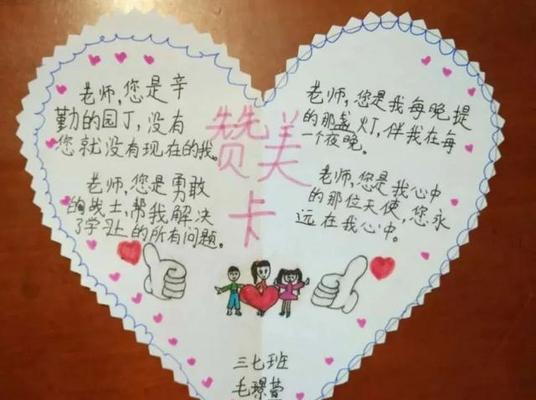 赞美
卡
老师,您是辛
勤的园丁,没有
您就没有现在的我。
老师,您是勇敢
的战士,帮我解决
了学习上的所有问题。
老师,您是我每晚提
的那盏灯,伴我在每
一个夜晚。
老师,您是我心中
的那位天使,您永
远在我心中。
三七班
毛